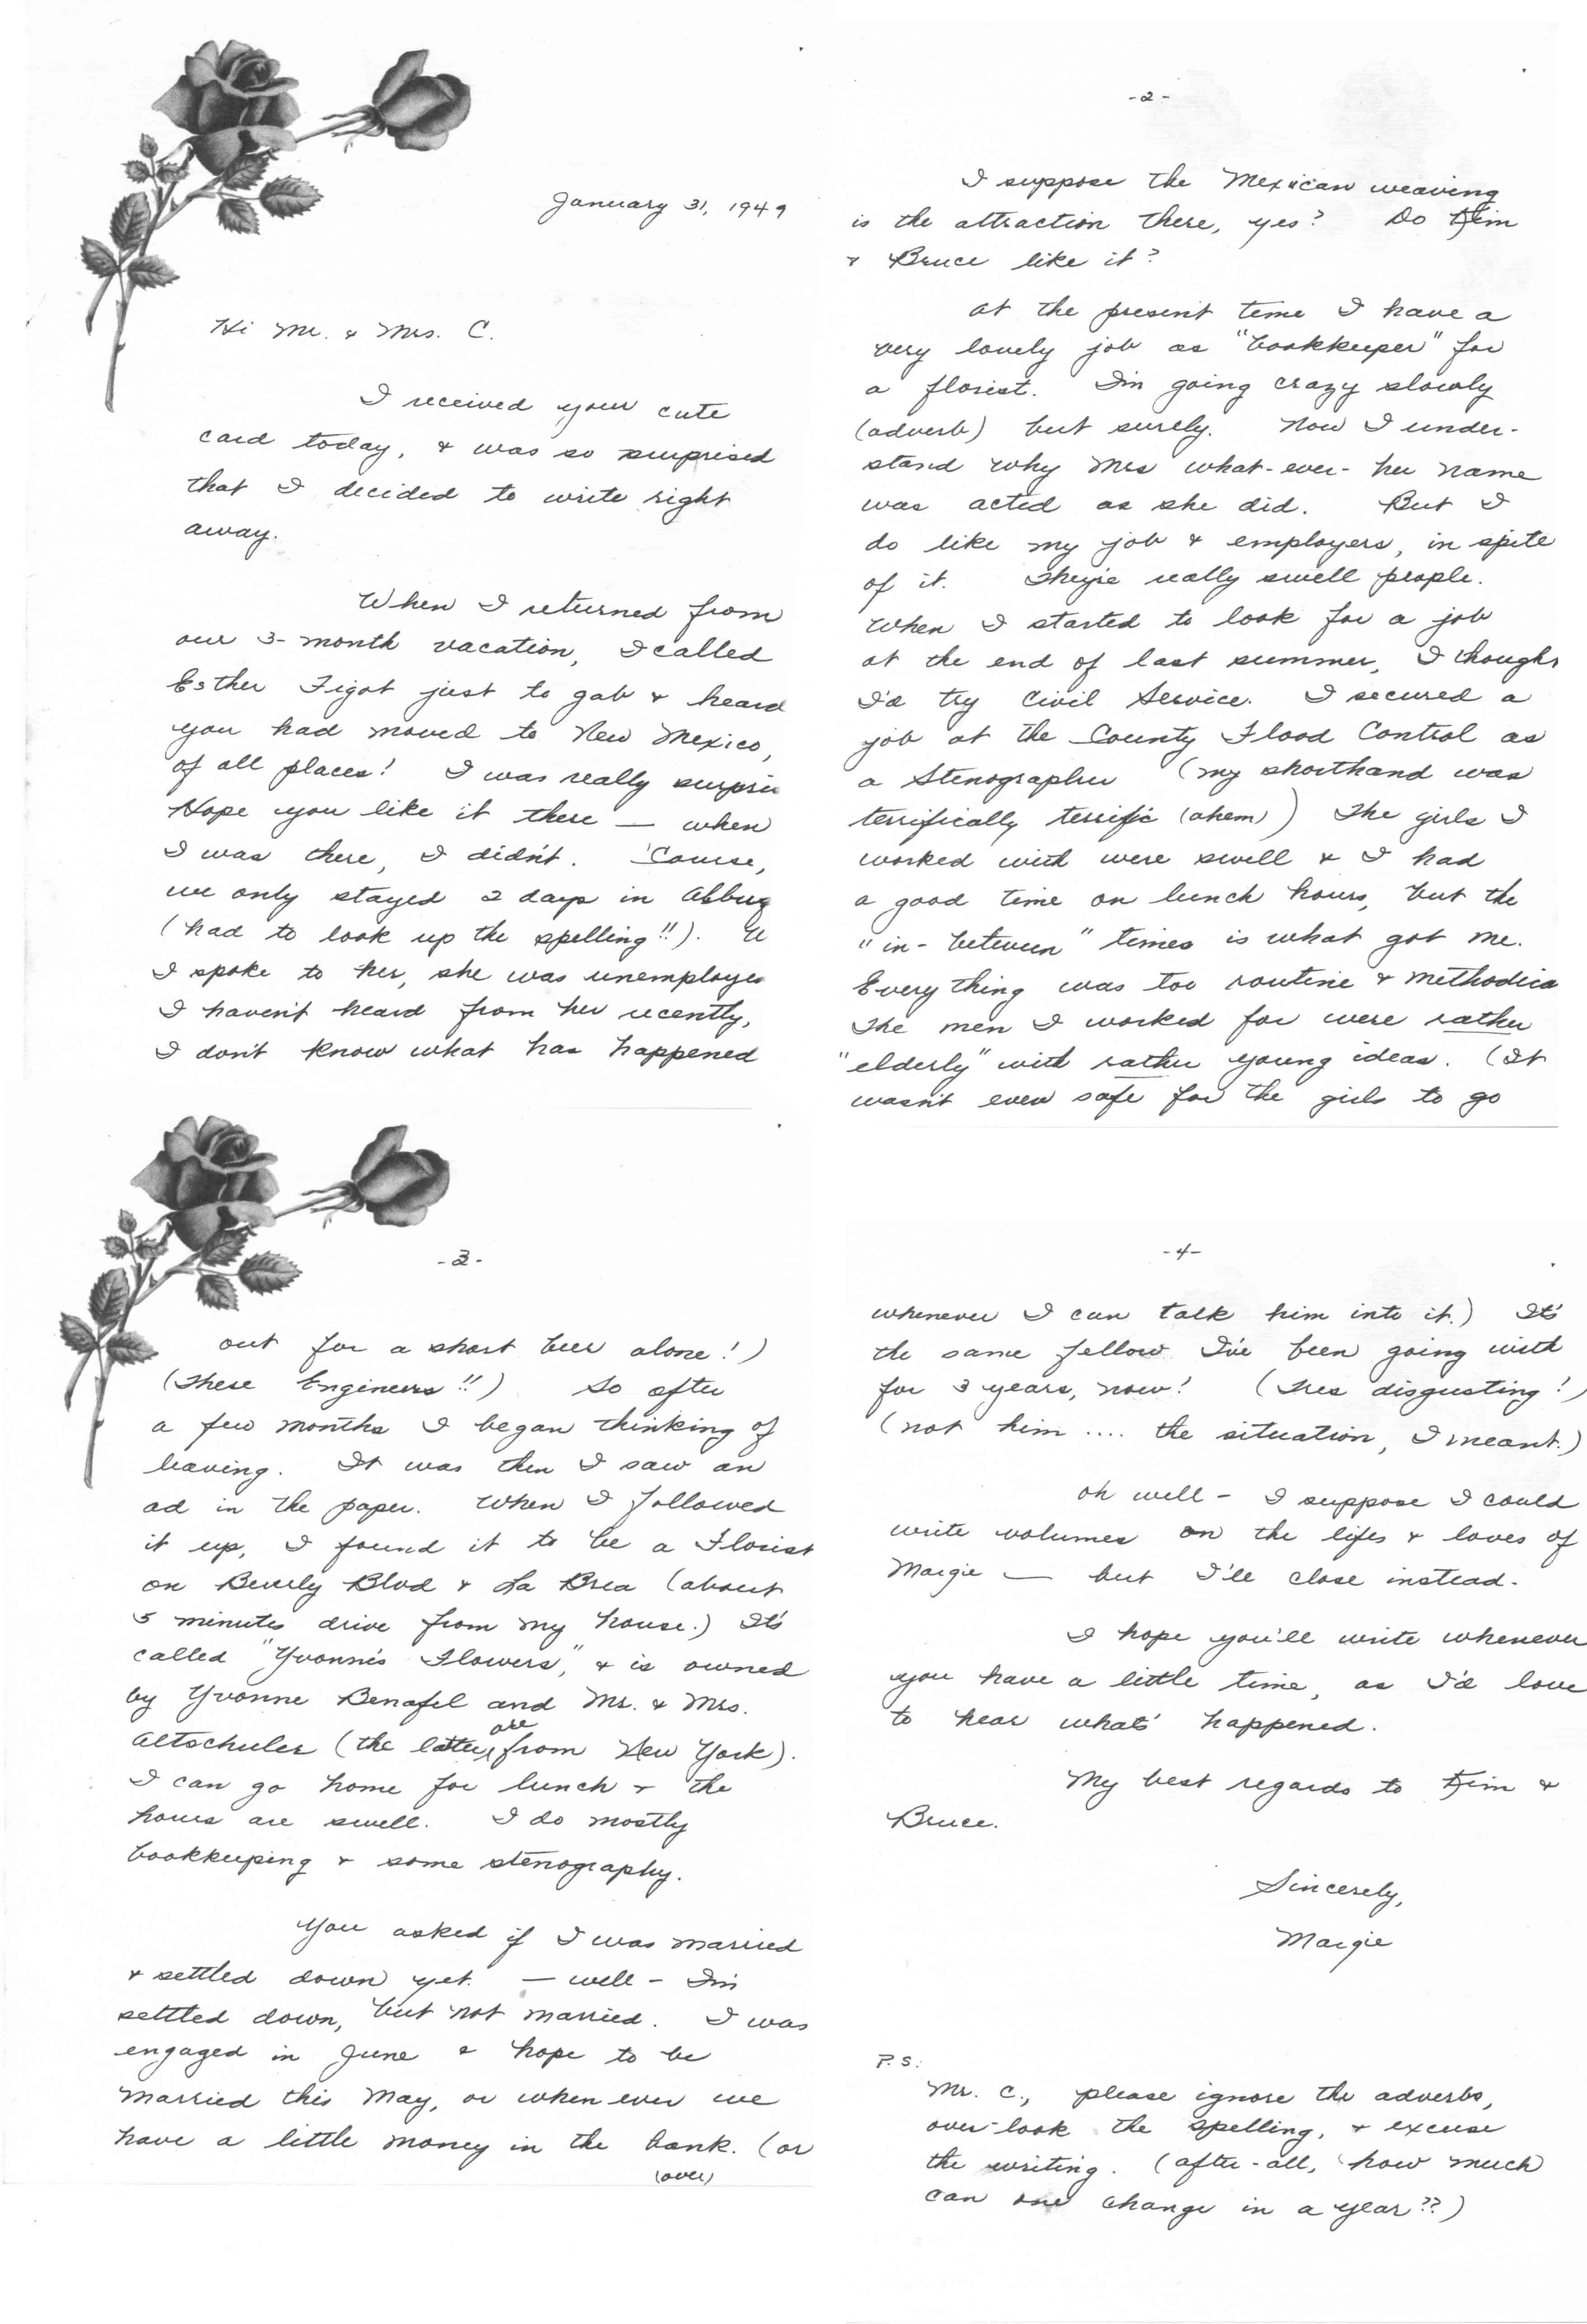 January 31, 1949
Hi Mr. & Mrs. C.
I received your cute
card today, & was so surprised
that I decided to write right
away.
When I returned from
our 3-month vacation, I called
Esther Figot just to gab & heard
you had moved to New Mexico,
of all places! I was really surpris
Hope you like it there — when
I was there, I didn't. 'Course,
we only stayed 2 days in Albuq
(had to look up the spelling!!).
I spoke to her, she was unemploye
I haven't heard from her recently,
I don't know what has happened
-2-
I suppose the Mexican weaving
is the attraction there, yes? Do Kim
& Bruce like it?
At the present time I have a
very lovely job as "bookkeeper" for
a florist. I'm going crazy slowly
(adverb) but surely. Now I under-
stand why Mrs what-ever-her name
was acted as she did. But I
do like my job & employers, in spite
of it. They're really swell people.
When I started to look for a job
at the end of last summer, I thought
I'd try Civil Service. I secured a
job at the County Flood Control as
a Stenographer (my shorthand was
terrifically terrific (ahem)) The girls I
worked with were swell & I had
a good time on lunch hours, but the
"in-between" times is what got me.
Everything was too routine & methodica
The men I worked for were rather
"elderly" with rather young ideas. (It
wasn't even safe for the girls to go
-3-
out for a short beer alone!)
(These Engineers!!) So after
a few months I began thinking of
leaving. It was then I saw an
ad in the paper. When I followed
it up, I found it to be a Florist
on Beverly Blvd & La Brea (about
5 minutes drive from my house.) It's
called "Yvonne's Flowers", & is owned
by Yvonne Benafel and Mr. & Mrs.
Altschuler (the latter are from New York).
I can go home for lunch & the
hours are swell. I do mostly
bookkeeping & some stenography.
You asked if I was married
& settled down yet. — well — I'm
settled down, but not married. I was
engaged in June & hope to be
married this May, or when ever we
have a little money in the bank. (or
(over)
-4-
whenever I can talk him into it.) It's
the same fellow I've been going with
for 3 years, now! (Tres disgusting!)
(not him .... the situation, I meant.)
Oh well — I suppose I could
write volumes on the lifes & loves of
Margie — but I'll close instead.
I hope you'll write whenever
you have a little time, as I'd love
to hear what's happened.
My best regards to Kim &
Bruce.
Sincerely,
Margie
P.S.
Mr. C., please ignore the adverbs,
over-look the spelling, & excuse
the writing. (after-all, how much
can one change in a year??)